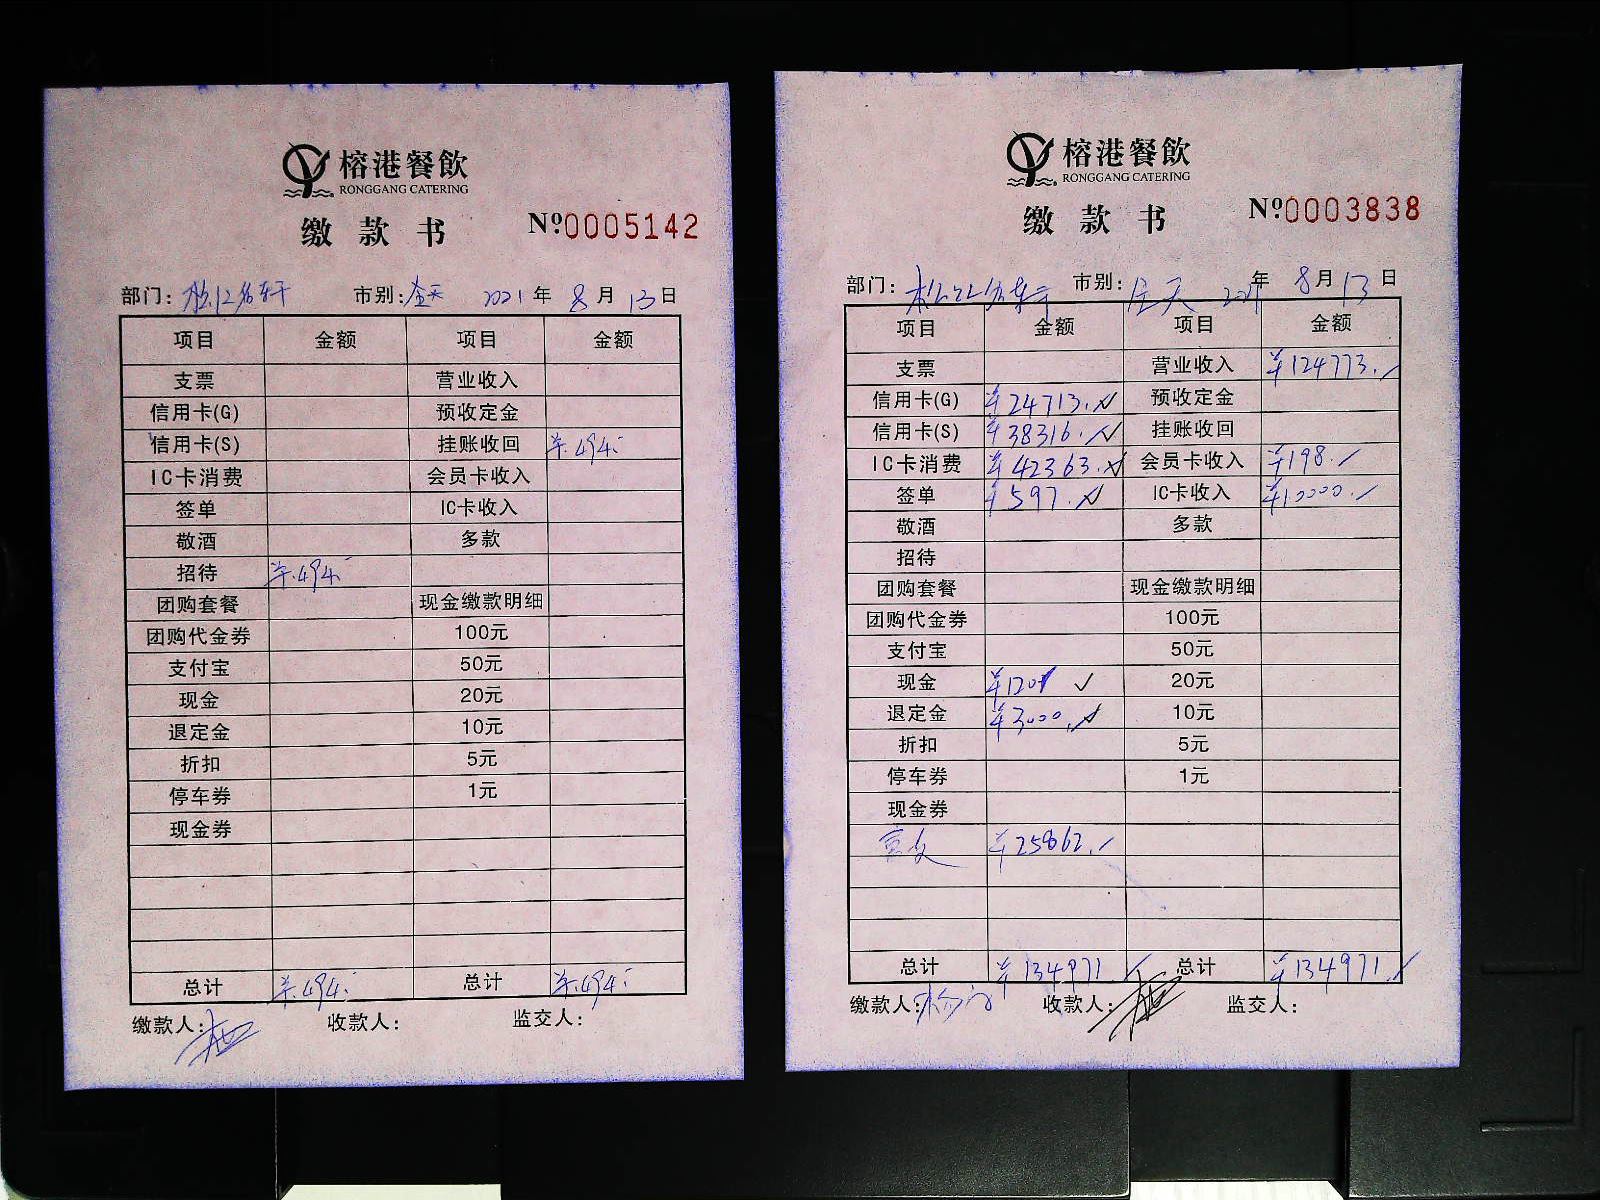 榕港餐飲
RONGGANG CATERING
缴款书 №0005142
部门: 松江名轩 市别: 全天 2021年8月13日
项目 金额 项目 金额
支票 营业收入
信用卡(G) 预收定金
信用卡(S) 挂账收回 ¥494.-
IC卡消费 会员卡收入
签单 IC卡收入
敬酒 多款
招待 ¥494.-
团购套餐 现金缴款明细
团购代金券 100元
支付宝 50元
现金 20元
退定金 10元
折扣 5元
停车券 1元
现金券
总计 ¥494.- 总计 ¥494.-
缴款人: 收款人: 监交人:
榕港餐飲
RONGGANG CATERING
缴款书 №0003838
部门: 松江名轩 市别: 全天 2021年8月13日
项目 金额 项目 金额
支票 营业收入 ¥124773.-
信用卡(G) ¥24713.- 预收定金
信用卡(S) ¥38316.- 挂账收回
IC卡消费 ¥42363.- 会员卡收入 ¥198.-
签单 ¥597.- IC卡收入 ¥10000.-
敬酒 多款
招待
团购套餐 现金缴款明细
团购代金券 100元
支付宝 50元
现金 ¥120 20元
退定金 ¥3000.- 10元
折扣 5元
停车券 1元
现金券
¥25862.-
总计 ¥134971.- 总计 ¥134971.-
缴款人: 收款人: 监交人: